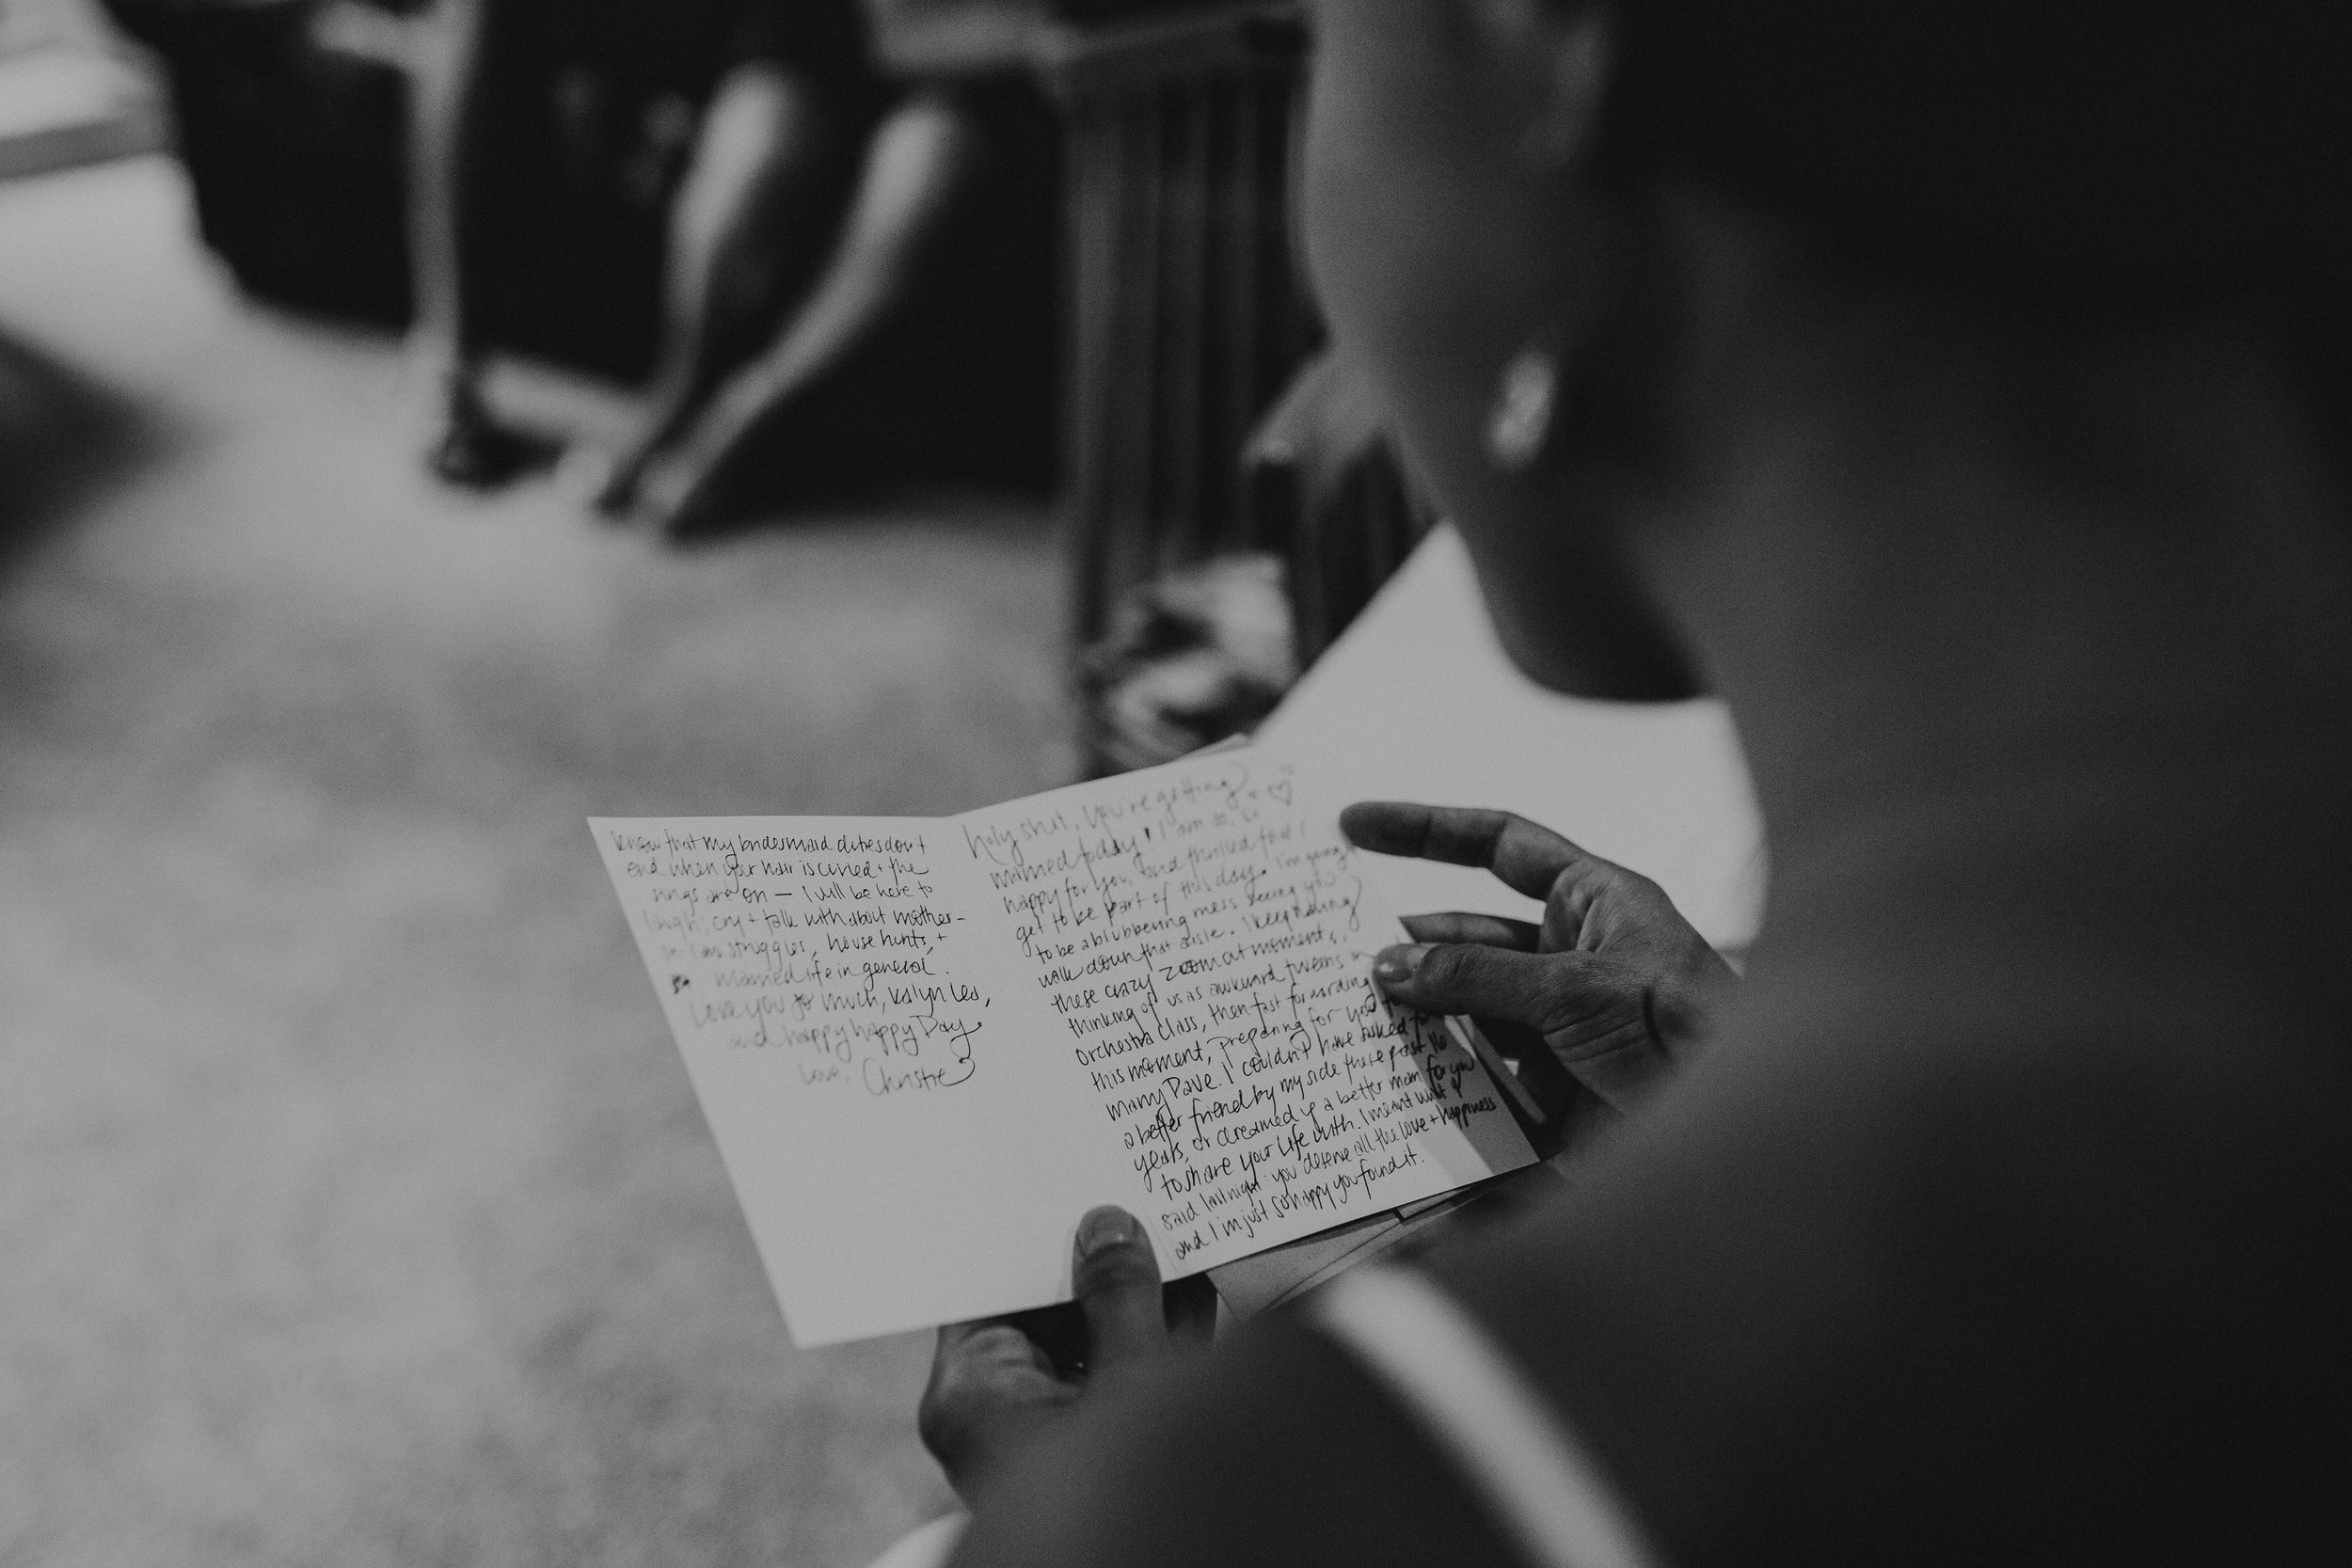 know that my bridesmaid duties don't
end when your hair is curled + the
rings are on — I will be here to
laugh, cry + talk with about mother-
in-law struggles, house hunts, +
married life in general.
Love you so much, Kalyn Lea,
and happy happy Day
Love, Christie
holy shit, you're getting
married today! I am so, so
happy for you, and thrilled that I
get to be part of this day. I'm going
to be a blubbering mess seeing you
walk down that aisle. I keep having
these crazy zoom out moments,
thinking of us as awkward tweens in
orchestra class, then fast forwarding
this moment, preparing for you to
marry Dave. I couldn't have asked for
a better friend by my side these past 16
years, or dreamed up a better man for you
to share your life with. I meant what I
said last night: you deserve all the love + happiness
and I'm just so happy you found it.